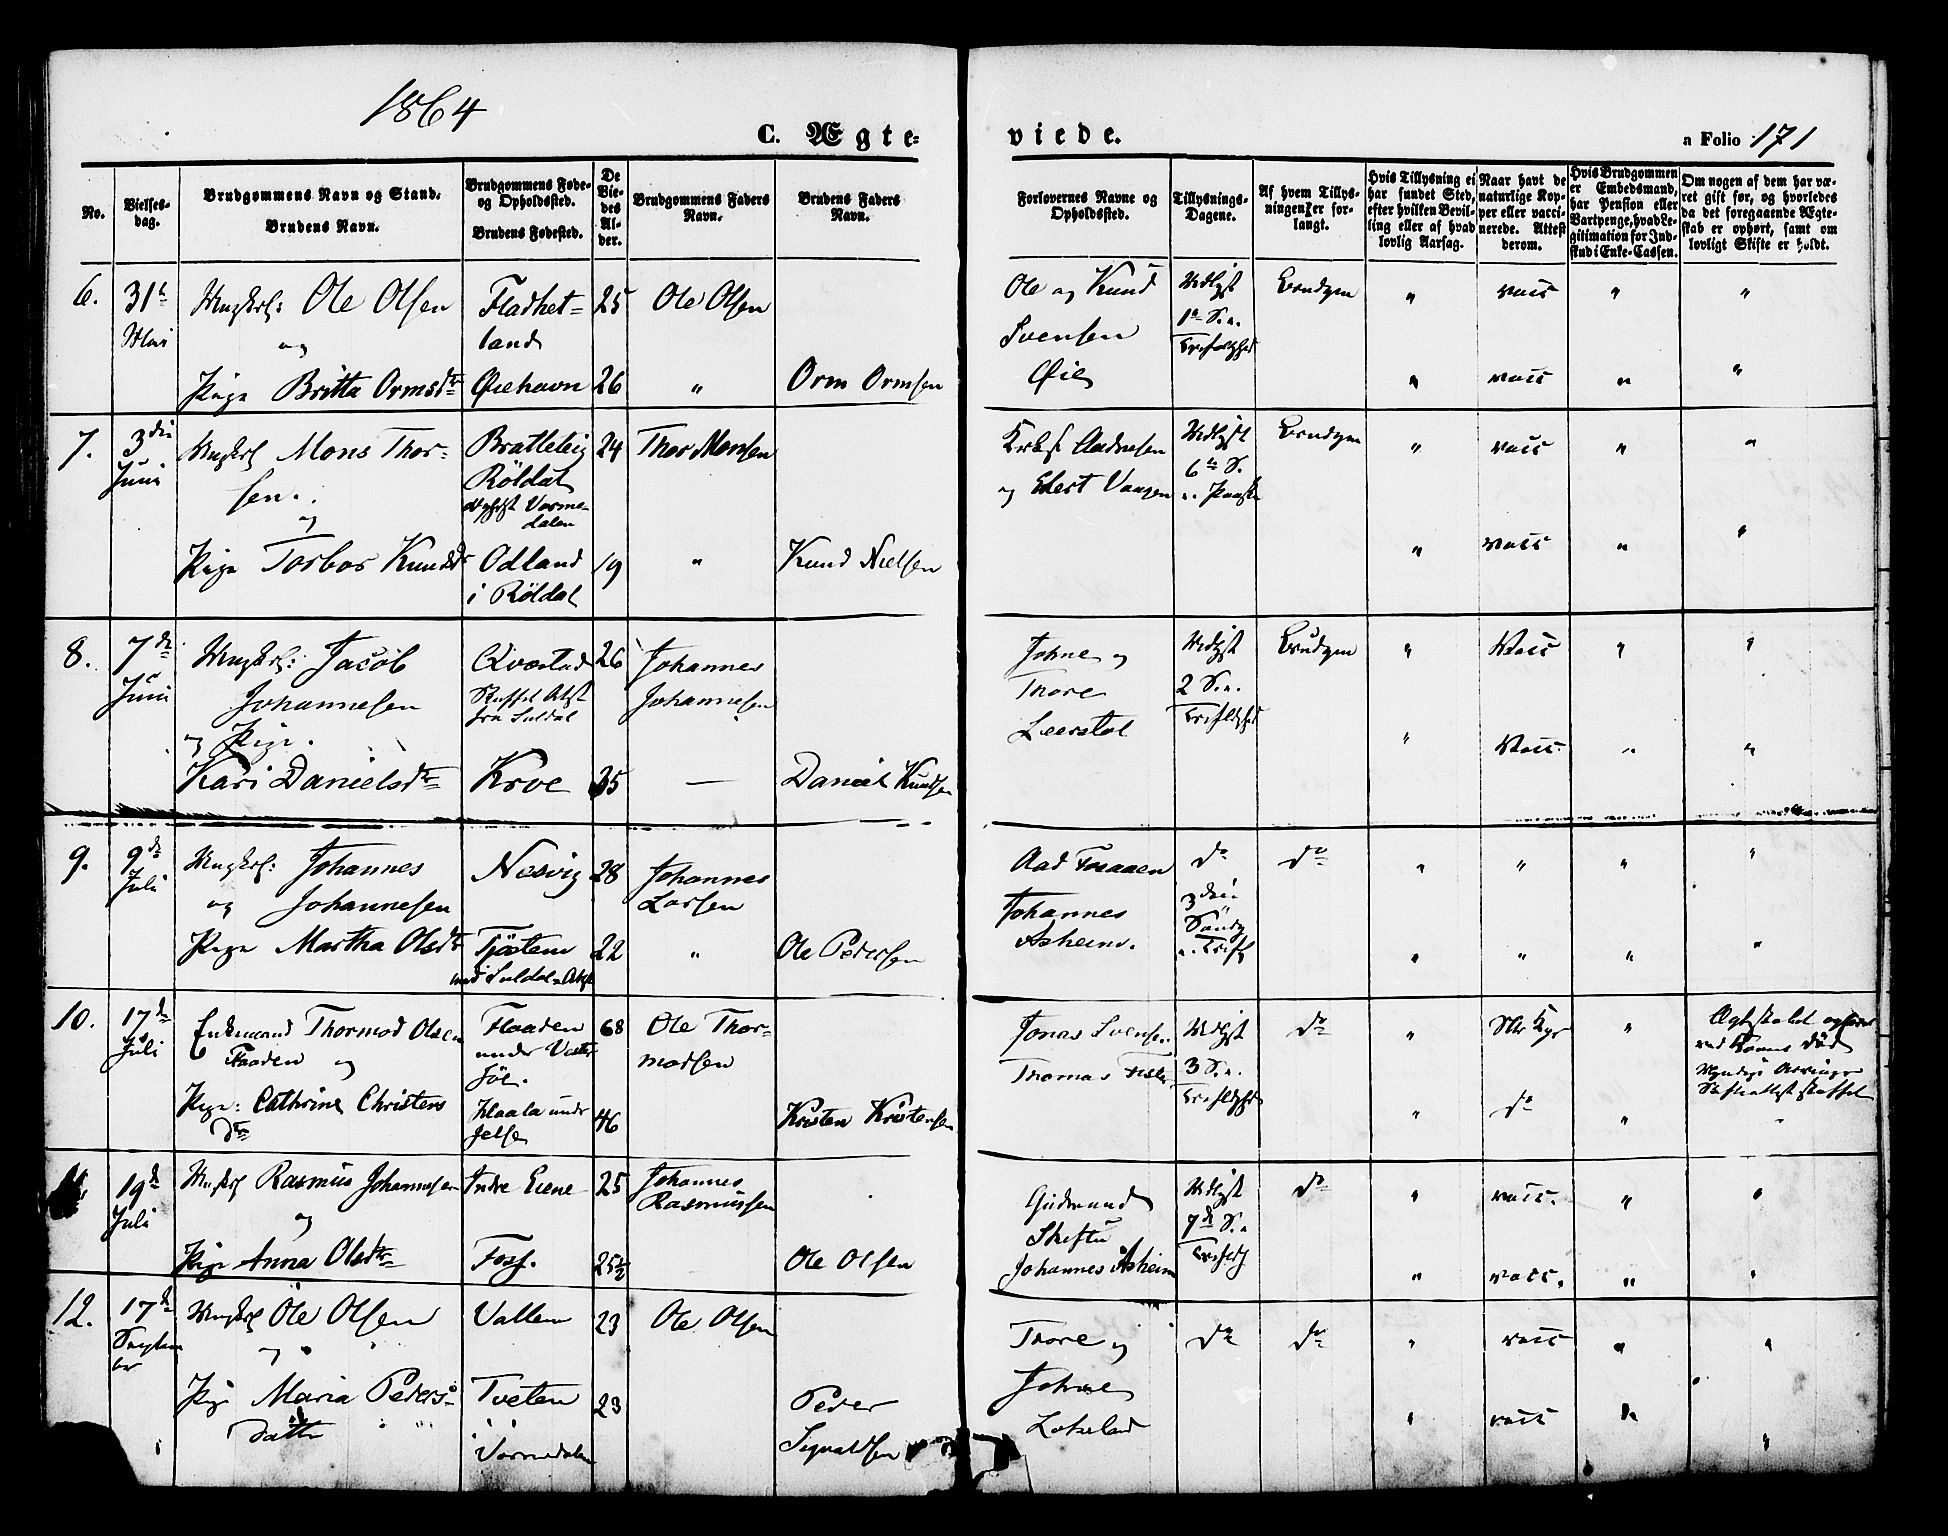 1864
C. Ægte-
viede.
a Folio 171
No.
Vielses-
dag.
Brudgommens Navn og Stand.
Brudens Navn.
Brudgommens Føde-
og Opholdssted.
Brudens Fødested.
De
Vie-
des
Al-
der.
Brudgommens Faders
Navn.
Brudens Faders
Navn.
Forlovernes Navne og
Opholdssted.
Tillysnings-
Dagene.
Af hvem Tillys-
ningen er for-
langt.
Hvis Tillysning ei
har fundet Sted,
efter hvilken Bevil-
ling eller af hvad
lovlig Aarsag.
Naar havt de
naturlige Kop-
per eller vacci-
nerede. Attest
derom.
Hvis Brudgommen
er Embedsmand,
har Pension eller
Vartpenge, hvad Le-
gitimation for Ind-
skud i Enke-Cassen.
Om nogen af dem har væ-
ret gift før, og hvorledes
da det foregaaende Ægte-
skab er ophørt, samt om
lovligt Skifte er holdt.
6.
31te
Mai
Ungkrl: Ole Olsen
og
Pige Britta Ormsdtr
Fladhet-
land
Øiehavn
25
26
Ole Olsen
"
Orm Ormsen
Ole og Knud
Svensen
Øie
1ste S. e.
"
vacc
"
"
"
vacc
"
"
7.
3die
Juni
Ungkrl Mons Thor-
sen.
og
Pige Torbor Knudsdr
Bratteleig
Röldal
dalen
Odland
i Röldal
24
19
Thor Monsen
"
Knud Nielsen
og Edert Vaagen
6te S.
"
vacc
"
"
"
vacc
"
"
8.
7de
Juni
Ungkrl: Jacob
Johannesen
og Pige
Kari Danielsdtr
Qvæstad
fra Suldal
Kroe
26
35
Johannes
Johannesen
—
Daniel Knudsen
Johne og
Thore
Leerstøl
2 S. e.
"
Vacc
"
"
"
Vacc.
"
"
9.
9de
Juli
Ungkrl: Johannes
og Johannesen
Pige Martha Olsdtr
Nesvig
Tjøstem
28
22
Johannes
Larsen
"
Ole Pedersen
Aad Fosaaen
Johannes
Asheim.
do
3die
Sönd
do
"
"
"
"
"
"
"
"
10.
17de
Juli
Enkemand Thormod Olsen
Flaaden og
Pige: Cathrine Christens
Dtr
Flaaden
under
Jelse
68
46
Ole Thor-
modsen
Kristen Kristensen
Jonas Svensen
Thomas
3 S. e.
do
"
"
"
do
"
"
19de
Juli
Ungkrl Rasmus Johannesen
og
Pige Anna Olsdtr
Indre Eiene
Foss.
25
25½
Johannes
Rasmussen
Ole Olsen
Gudmund
Skeftu
Johannes Asheim
7de S. e
do
"
vacc.
"
"
"
vacc.
"
"
12.
17de
Septem
ber
Ungkrl Ole Olsen
og
Pige Maria Peders-
datter
Vatlem
Tveten
i Vormedalen
23
23
Ole Olsen
Peder
Sigvaldsen
Thore og
Johne
Lokeland
do
do
"
vacc
"
"
"
vacc
"
"